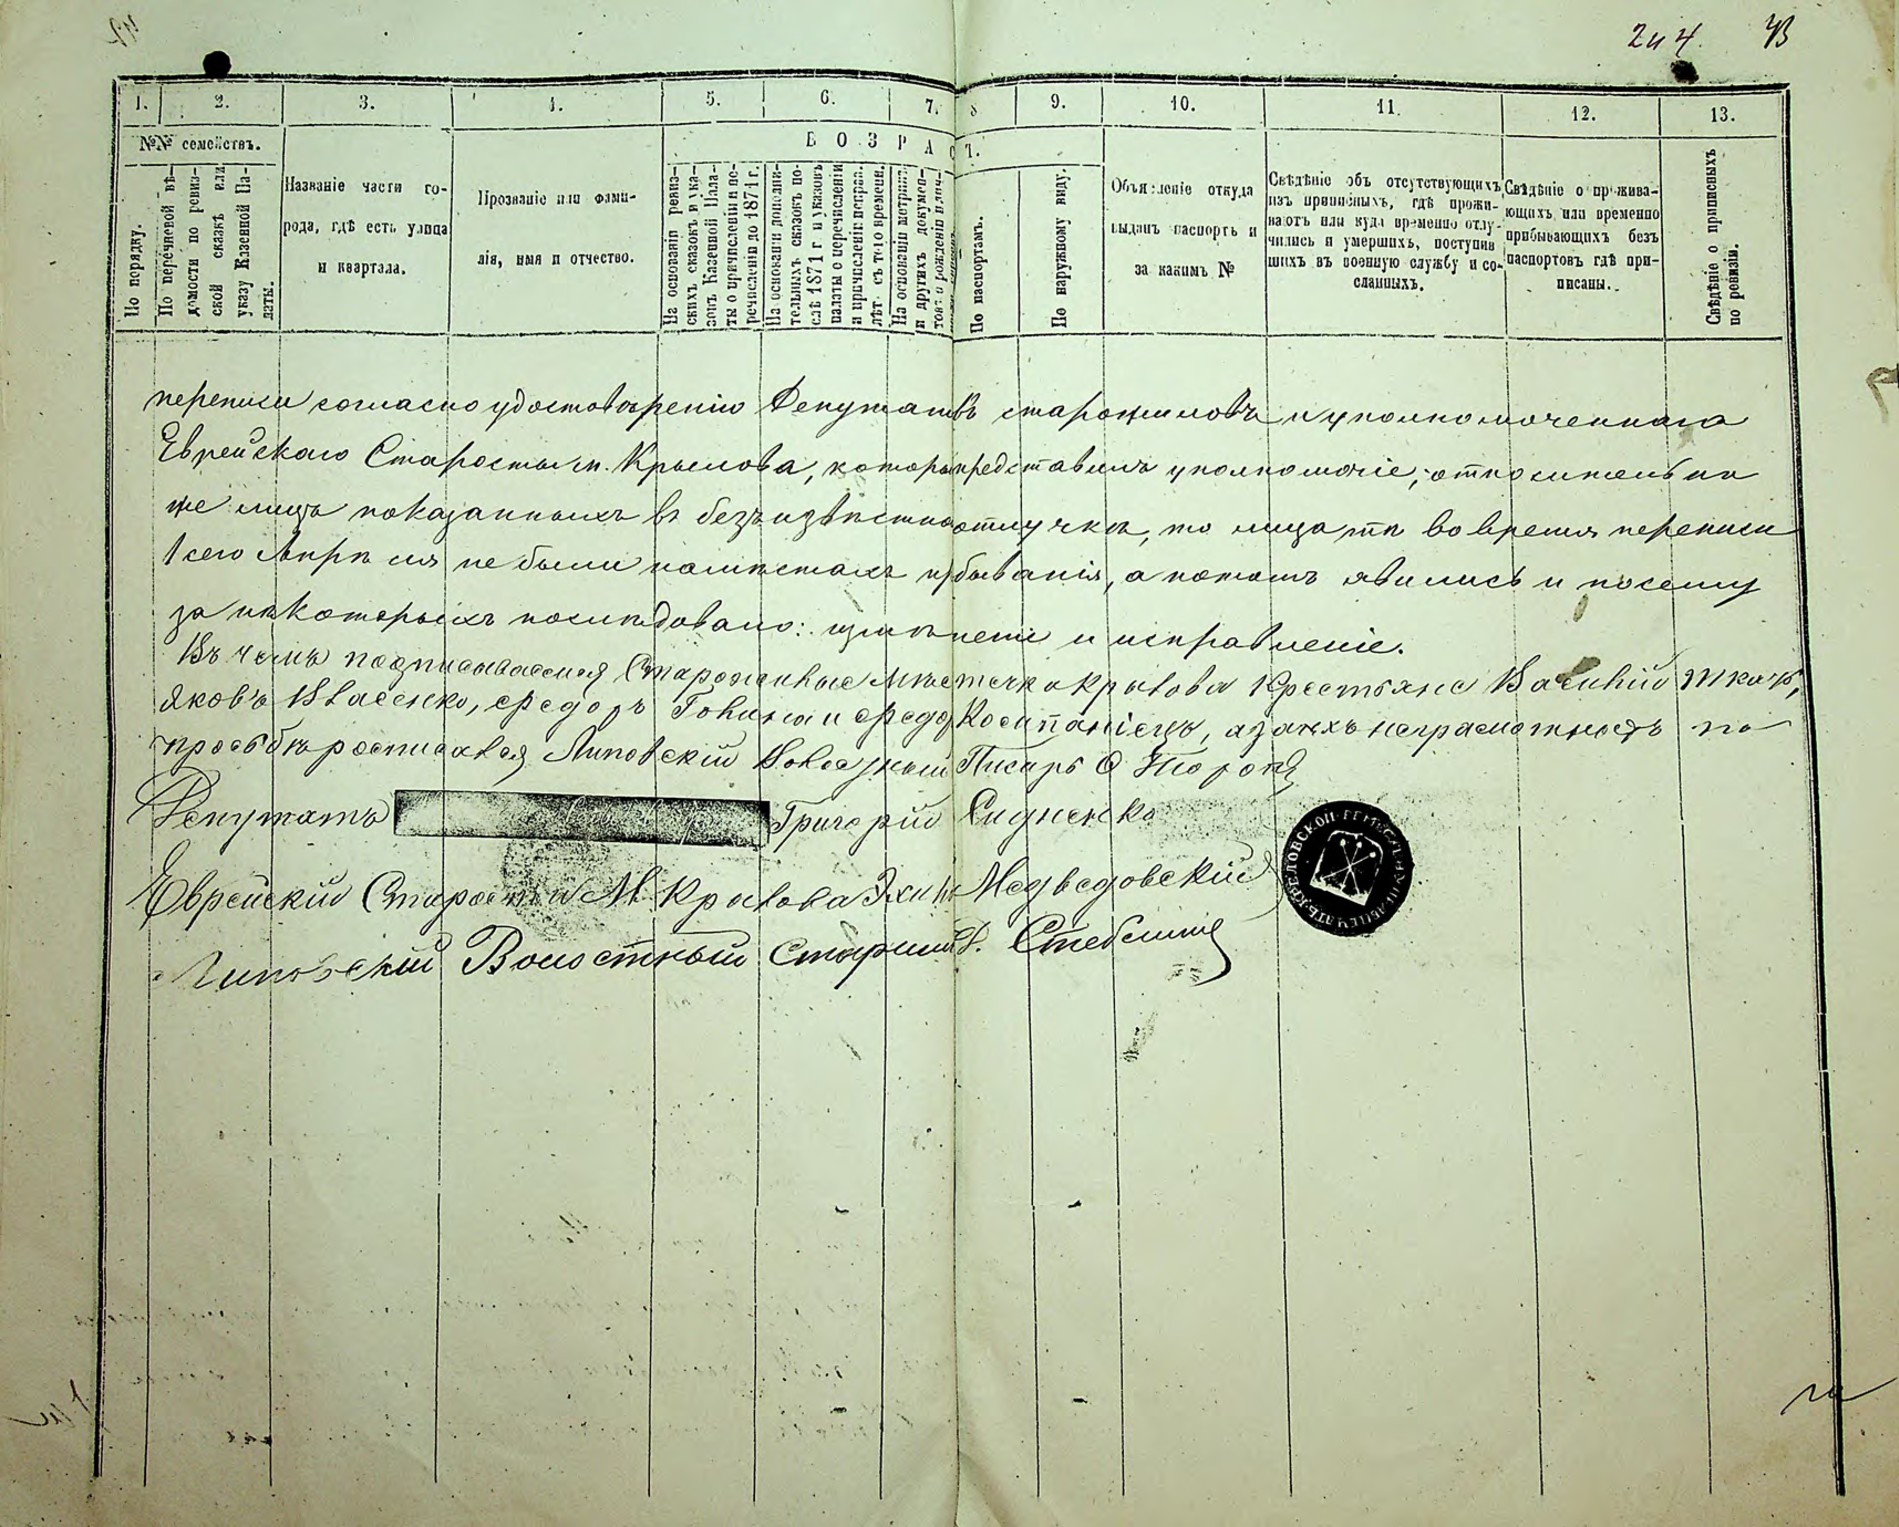 244. 43
1. 2. 3. 4. 5. 6. 7. 8 9. 10. 11. 12. 13.
№№ семействъ.
В О З Р А С Т.
По порядку.
По перечневой вѣ-
домости по ревиз-
ской сказкѣ или
указу Казенной Па-
латы.
Названіе части го-
рода, гдѣ есть улица
и квартала.
Прозваніе или фами-
лія, имя и отчество.
На основаніи ревиз-
скихъ сказокъ и ука-
зовъ Казенной Пала-
ты о причисленіи и пе-
речисленіи до 1871 г.
На основаніи дополни-
тельныхъ сказокъ по-
слѣ 1871 г и указовъ
палаты о перечисленіи
и причисленіи
лѣтъ съ того времени.
На основаніи метрик.
и другихъ докумен-
товъ о рожденіи
По паспортамъ.
По наружному виду.
Объявленіе откуда
выданъ паспортъ и
за какимъ №
Свѣдѣніе объ отсутствующихъ
изъ приписныхъ, гдѣ прожи-
ваютъ или куда временно отлу-
чились и умершихъ, поступив
шихъ въ военную службу и со-
сланныхъ.
Свѣдѣніе о прожива-
ющихъ или временно
прибывающихъ безъ
паспортовъ гдѣ при-
писаны.
Свѣдѣніе о приписныхъ
по ревизіи.
переписи согласно удостовѣренію Депутатовъ старожиловъ и уполномоченнаго
Еврейскаго Старосты м. Крылова, которы представилъ уполномочіе; относительно
же лицъ показанныхъ въ безъизвѣстной отлучкѣ, то лица тѣ во время переписи
1 сего Апрѣля не были на мѣстахъ пребыванія, а потомъ явились и посему
за нѣкоторыхъ послѣдовало: измѣненіе и исправленіе.
Въ чемъ подписываемся Старожилые мѣстечка Крылова Крестьяне Василій Ткачъ,
Яковъ Власенко, Федоръ и Федоръ, а за ихъ неграмотность по
просьбѣ росписался Липовскій Волосный Писарь
Депутатъ Григорій Сидненко
Еврейскій Староста М. Крылова Медведовскій
Липовскій Волостный Старшина